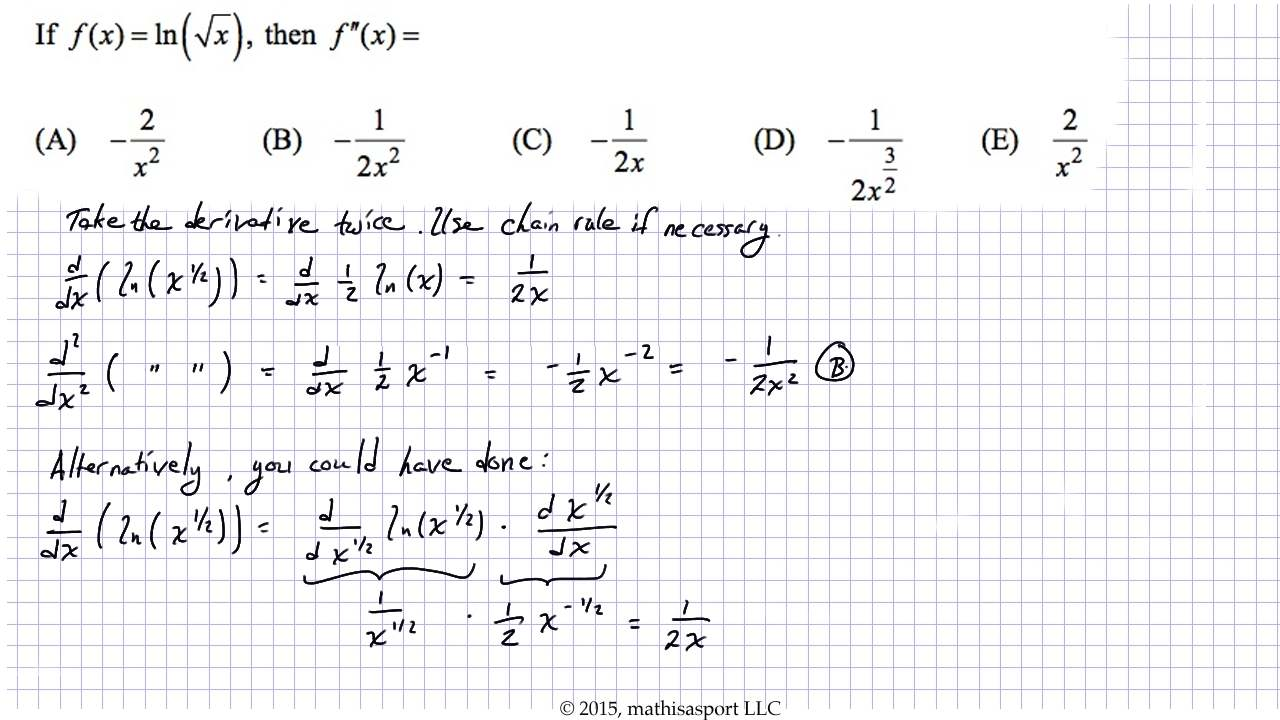 If f(x) = ln(√x), then f″(x) =
(A) −2/x² (B) −1/(2x²) (C) −1/(2x) (D) −1/(2x^(3/2)) (E) 2/x²
Take the derivative twice. Use chain rule if necessary.
d/dx (ln(x^1/2)) = d/dx 1/2 ln(x) = 1/(2x)
d²/dx² ( " " ) = d/dx 1/2 x^−1 = −1/2 x^−2 = −1/(2x²) B.
Alternatively, you could have done:
d/dx (ln(x^1/2)) = d/(d x^1/2) ln(x^1/2) · (d x^1/2)/dx
1/(x^1/2) · 1/2 x^−1/2 = 1/(2x)
© 2015, mathisasport LLC